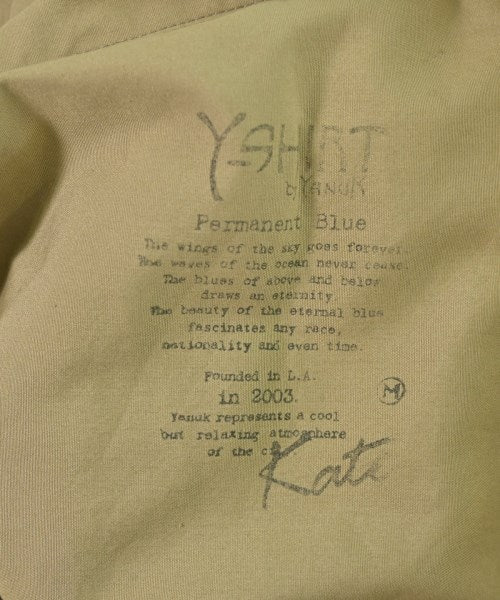 Y-SHIRT
by YANUK
Permanent Blue
The wings of the sky goes forever.
The waves of the ocean never cease.
The blues of above and below
draws an eternity.
The beauty of the eternal blue
fascinates any race,
nationality and even time.
Founded in L.A.
in 2003.
M
Yanuk represents a cool
but relaxing atmosphere
of the
Kate